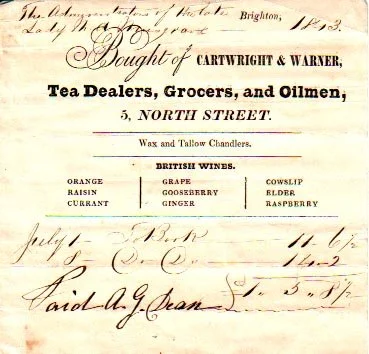 The Administrators of the late Brighton, 1843.
Lady
Bought of CARTWRIGHT & WARNER,
Tea Dealers, Grocers, and Oilmen,
5, NORTH STREET.
Wax and Tallow Chandlers.
BRITISH WINES.
ORANGE GRAPE COWSLIP
RAISIN GOOSEBERRY ELDER
CURRANT GINGER RASPBERRY
July 1 To Book 11 - 6½
8 Do Do 14 - 2
Paid A. G. Dean £1 - 5 - 8½